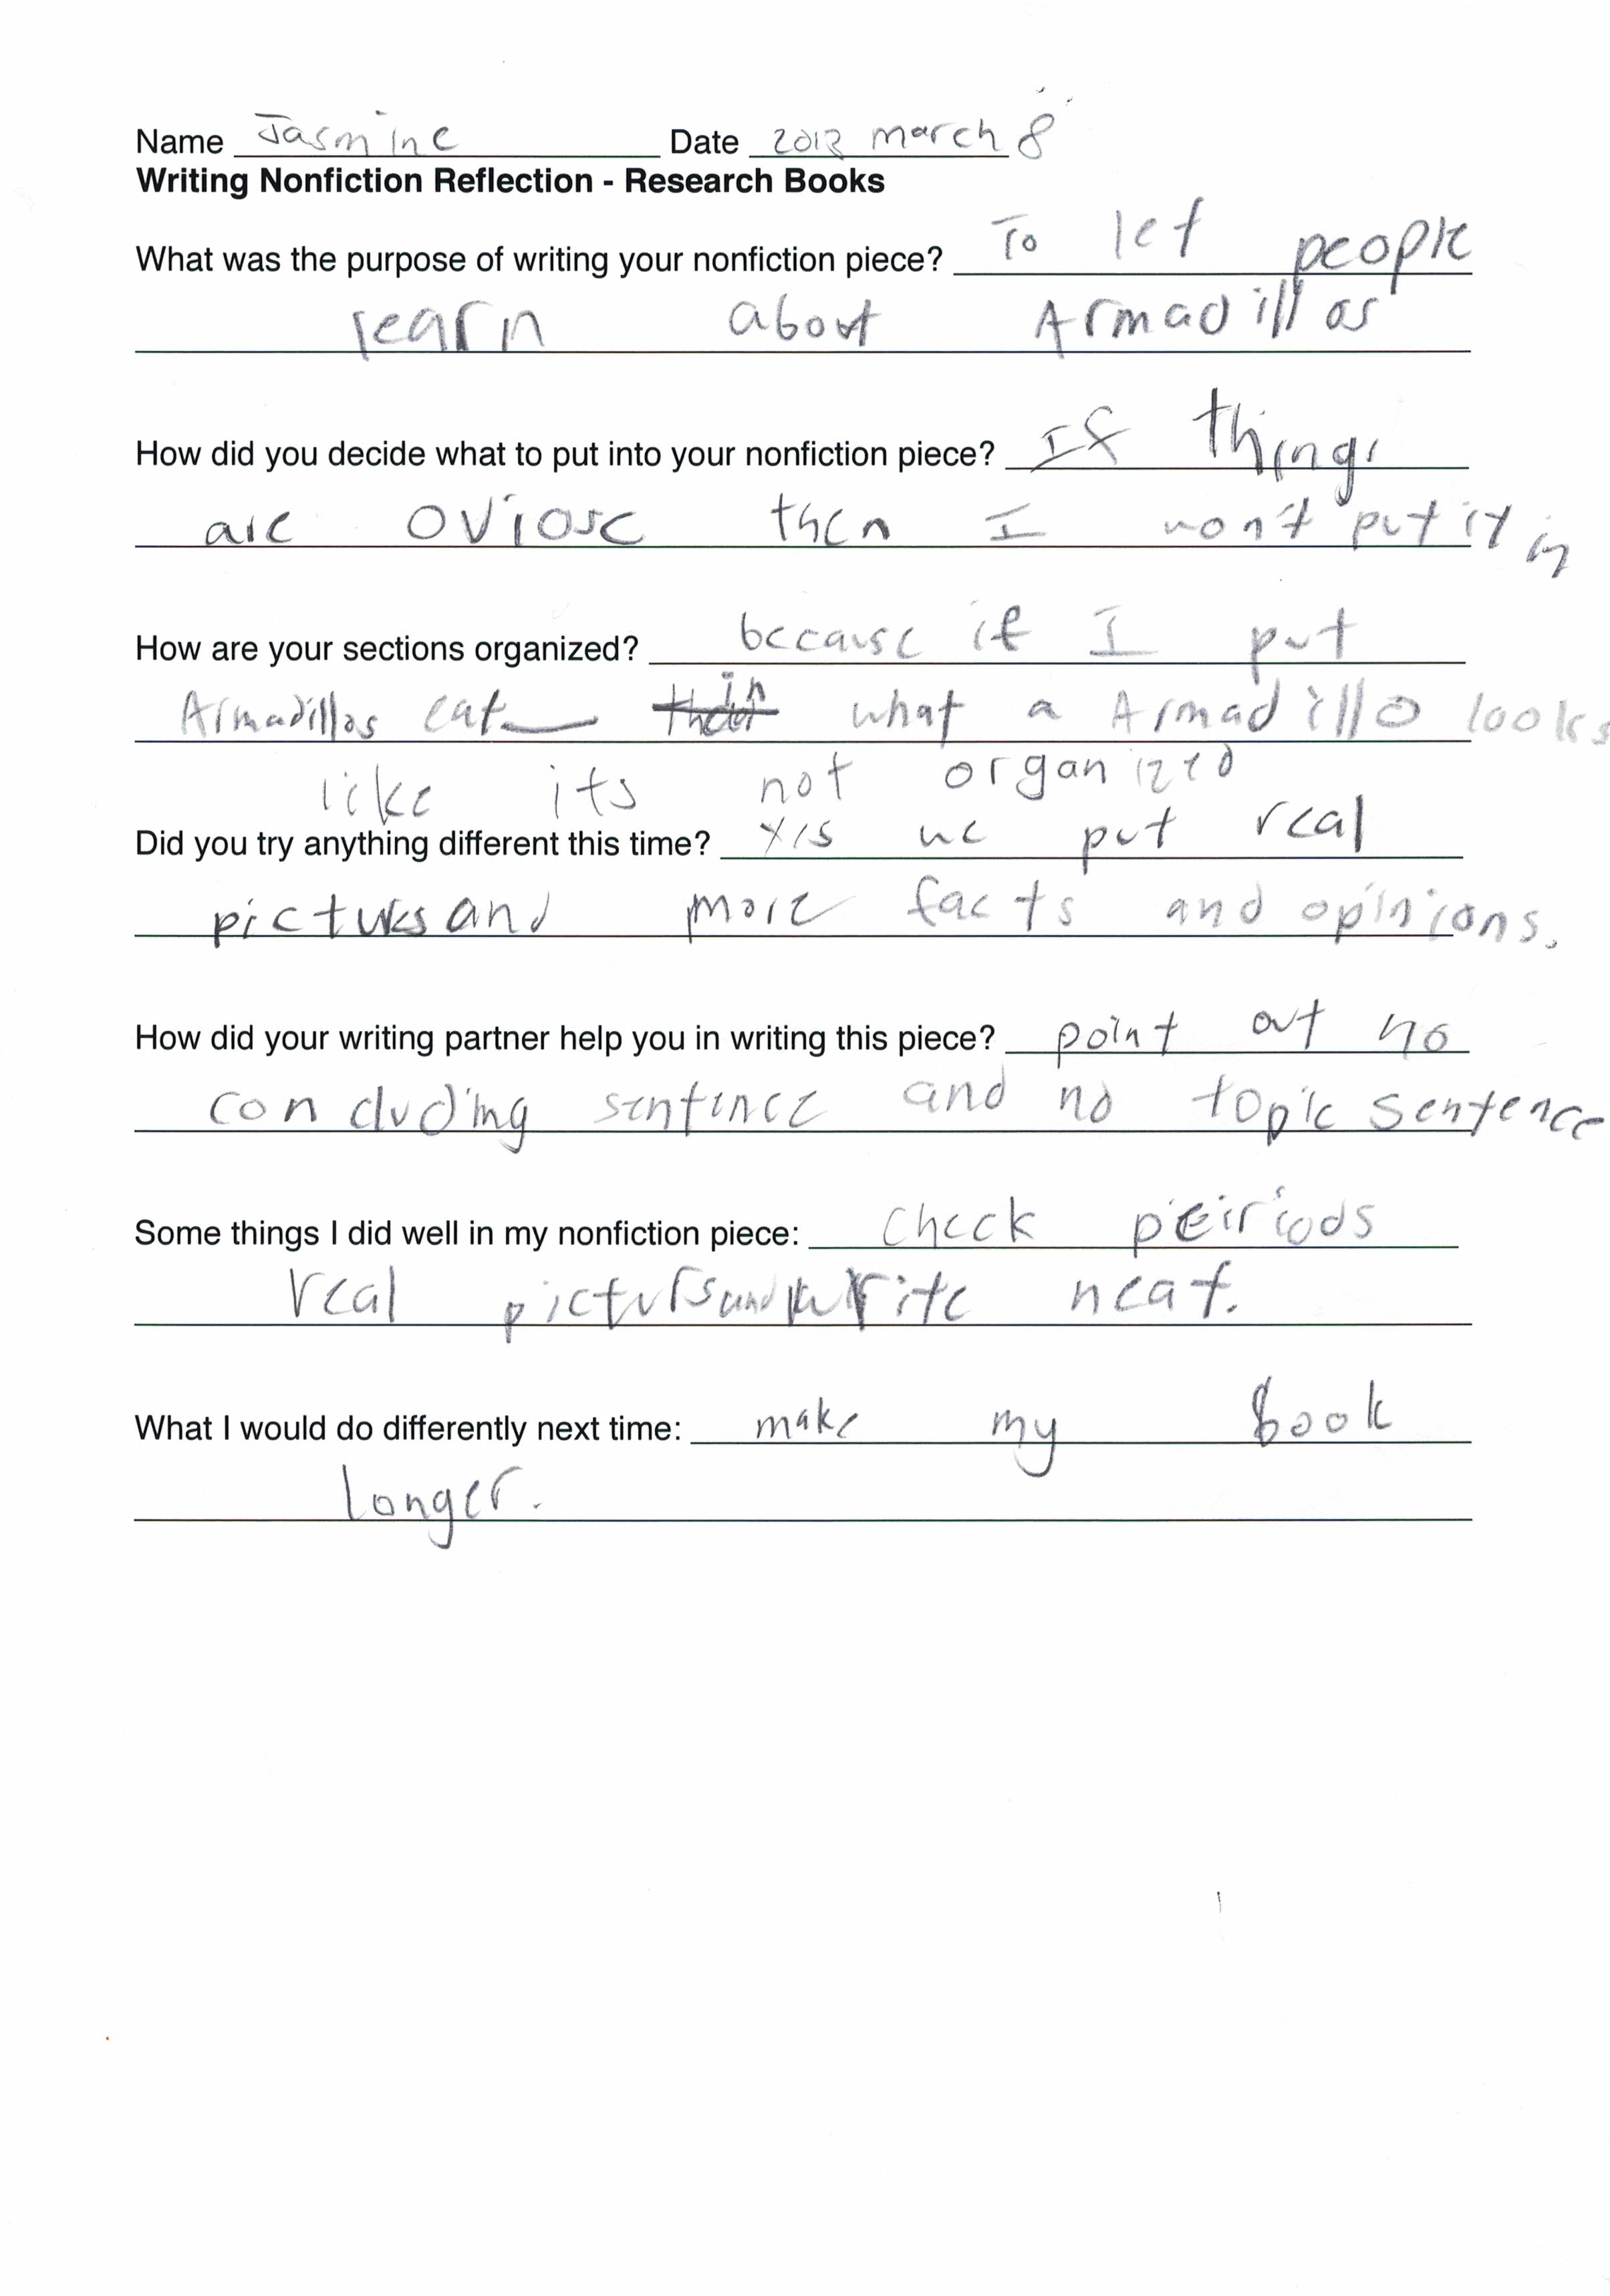 Name Jasmine Date 2012 march 8
Writing Nonfiction Reflection - Research Books
What was the purpose of writing your nonfiction piece? To let people
learn about Armadillos
How did you decide what to put into your nonfiction piece? If things
are oviose then I won't put it in
How are your sections organized? because if I put
Armadillos eat in what a Armadillo looks
like its not organized
Did you try anything different this time? yes we put real
pictures and more facts and opinions.
How did your writing partner help you in writing this piece? point out no
concluding sentence and no topic sentence
Some things I did well in my nonfiction piece: check peiriods
real picturs and write neat.
What I would do differently next time: make my book
longer.